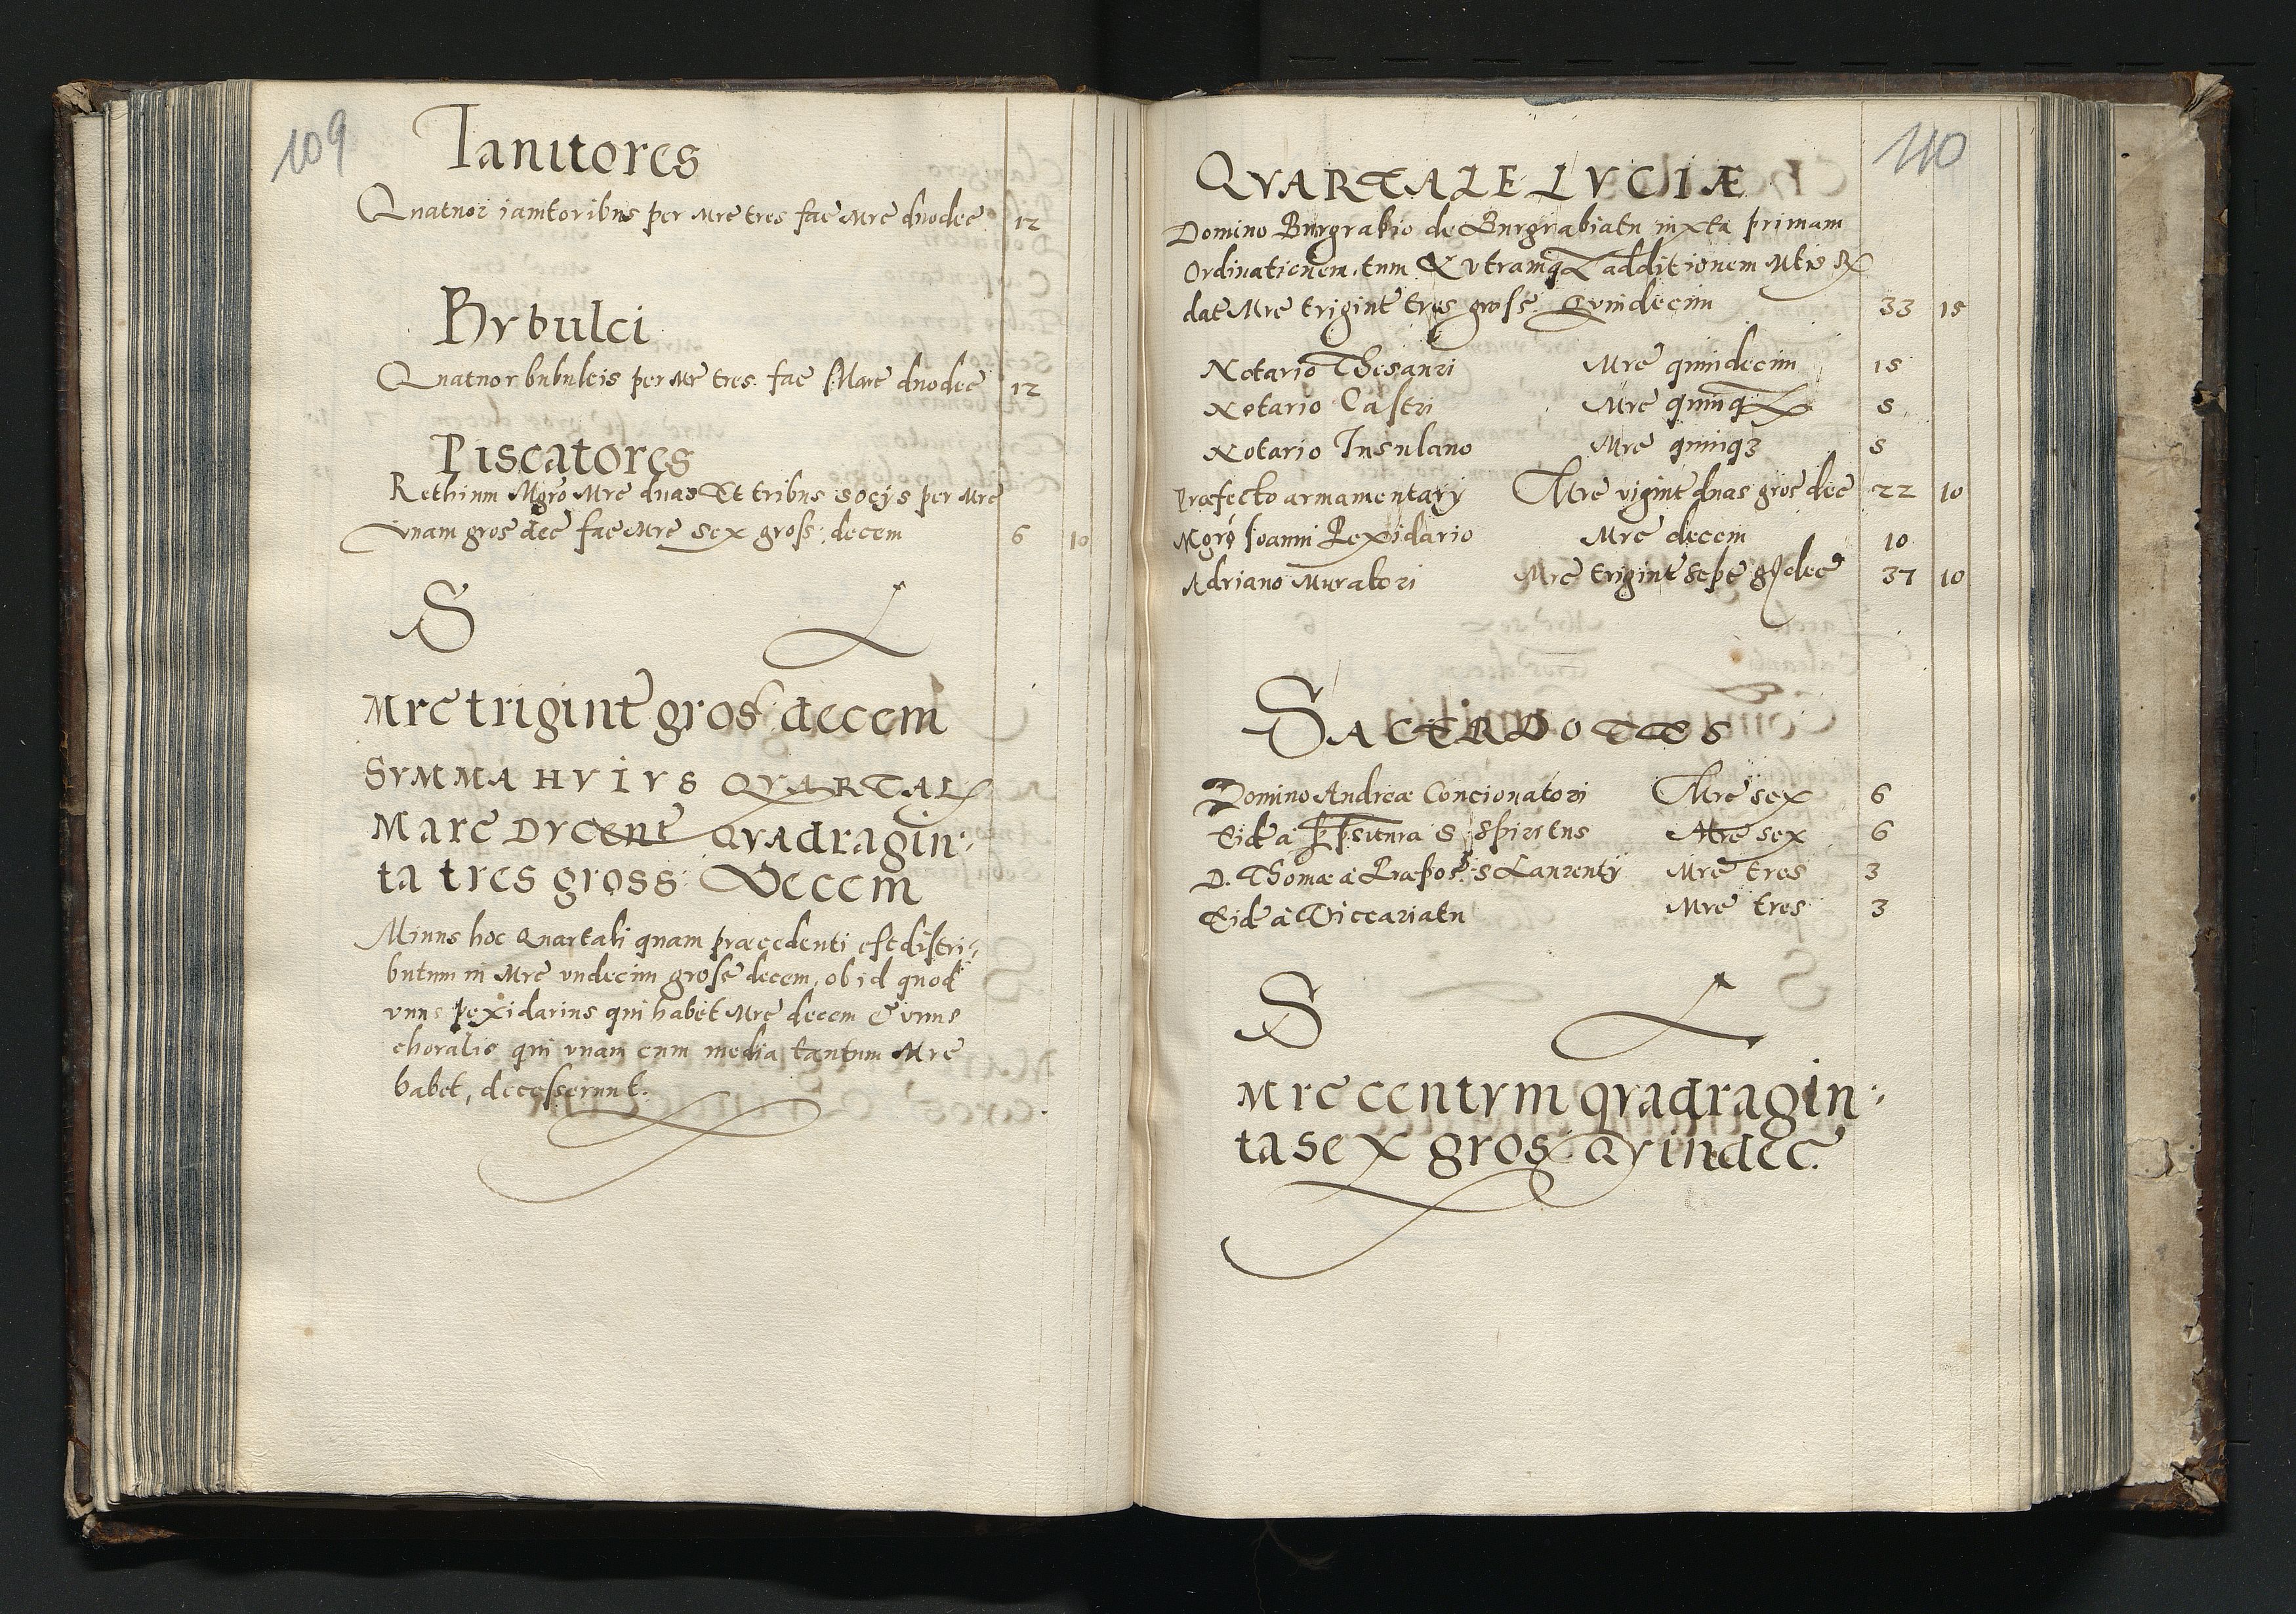 109
Ianitores
Quatuor ianitoribus per Mrc tres fac Mrc duodec 12
Bvbulci
Quatuor bubulcis per Mr tres fac Marc duodec 12
Piscatores
Rethium Mgro Mrc duas Et tribus socijs per Mrc
vnam gros dec fac Mrc sex gross: decem 6 10
S L
Mrc trigint gros decem
SVMMA HVIVS QVARTAL
Marc DVcent QVAdragin:
ta tres gross: Decem
Minus hoc Quartali quam præcedenti est distri:
butum in Mrc vndecim gross decem, ob id quod
vnus pexidarius qui habet Mrc decem & vnus
choralis qui vnam cum media tantum Mrc
habet, decesserunt.
110
QVARTALE LVCIÆ
Domino Burgrabio de Burgrabiatu iuxta primam
Ordinationem, tum & vtramq additionem Mtis
dat Mrc trigint tres gross Quindecim 33 15
Notario Thesauri Mrc quindecim 15
Notario Castri Mrc quinq 5
Notario Insulano Mrc quinq3 5
Præfecto armamentarij Mrc vigint duas gros dec 22 10
Mgro Ioanni Pexidario Mrc decem 10
Adriano Muratori Mrc trigint sept g dec 37 10
SACERDOTES
Domino Andreæ Concionatori Mrc sex 6
Eid à S Spiritus Mrc sex 6
D. Thomæ à Præpos: S Laurentij Mrc tres 3
Eid à Viccariatu Mrc tres 3
S L
Mrc centvm qvadragin:
ta sex gros Qvindec.